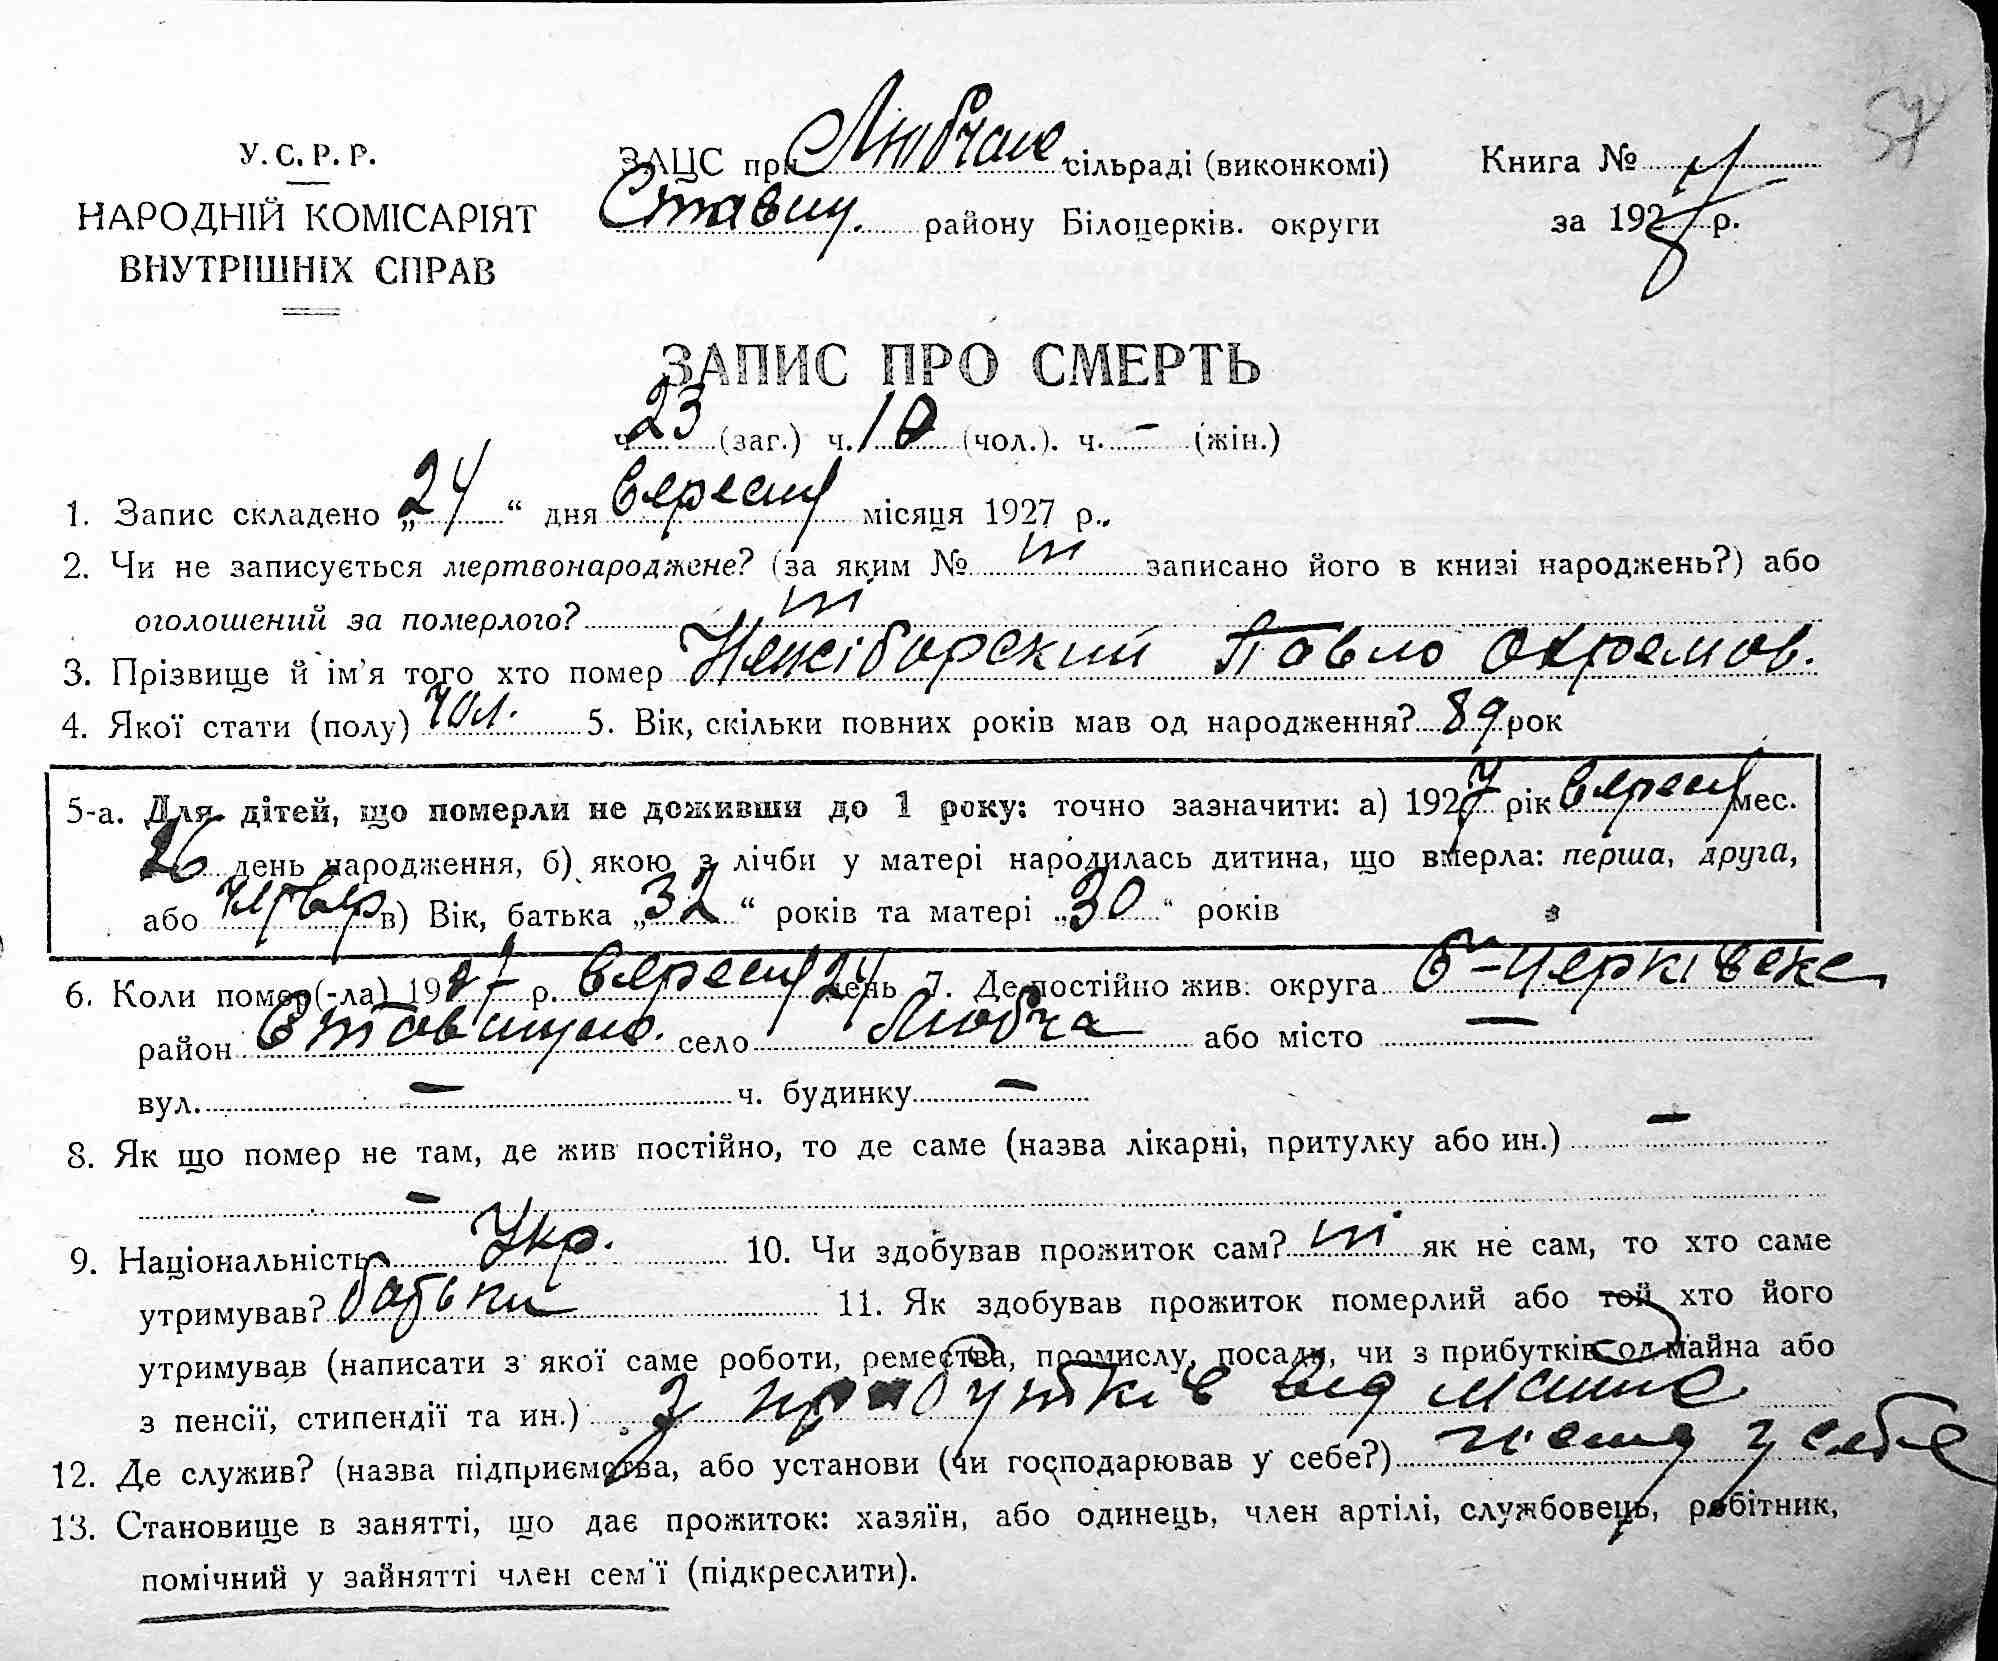 57
У. С. Р. Р.
НАРОДНІЙ КОМІСАРІЯТ
ВНУТРІШНІХ СПРАВ
ЗАЦС при Любчан. сільраді (виконкомі)
Ставищ. району Білоцерків. округи
Книга № 1
за 1927 р.
ЗАПИС ПРО СМЕРТЬ
ч. 23 (заг.) ч. 10 (чол.). ч. – (жін.)
1. Запис складено „24“ дня вересня місяця 1927 р..
2. Чи не записується мертвонароджене? (за яким № ні записано його в книзі народжень?) або
оголошений за померлого? ні
3. Прізвище й ім'я того хто помер Межіборский Павло Охремов.
4. Якої стати (полу) чол. 5. Вік, скільки повних років мав од народження? 8 рок
5-а. Для дітей, що померли не доживши до 1 року: точно зазначити: а) 1927 рік вересня мес.
16 день народження, б) якою з лічби у матері народилась дитина, що вмерла: перша, друга,
або четвер в) Вік, батька „32“ років та матері „30“ років
6. Коли помер(-ла) 1927 р. вересня 24 день 7. Де постійно жив: округа Б-Церківське
район Ставищан. село Любча або місто –
вул. – ч. будинку –
8. Як що помер не там, де жив постійно, то де саме (назва лікарні, притулку або ин.) –
–
9. Національність Укр. 10. Чи здобував прожиток сам? ні як не сам, то хто саме
утримував? батьки 11. Як здобував прожиток померлий або той хто його
утримував (написати з якої саме роботи, ремества, промислу, посади, чи з прибутків од майна або
з пенсії, стипендії та ин.) з прибутків від
12. Де служив? (назва підприємства, або установи (чи господарював у себе?) у себе
13. Становище в занятті, що дає прожиток: хазяїн, або одинець, член артілі, службовець, робітник,
помічний у зайнятті член сем'ї (підкреслити).